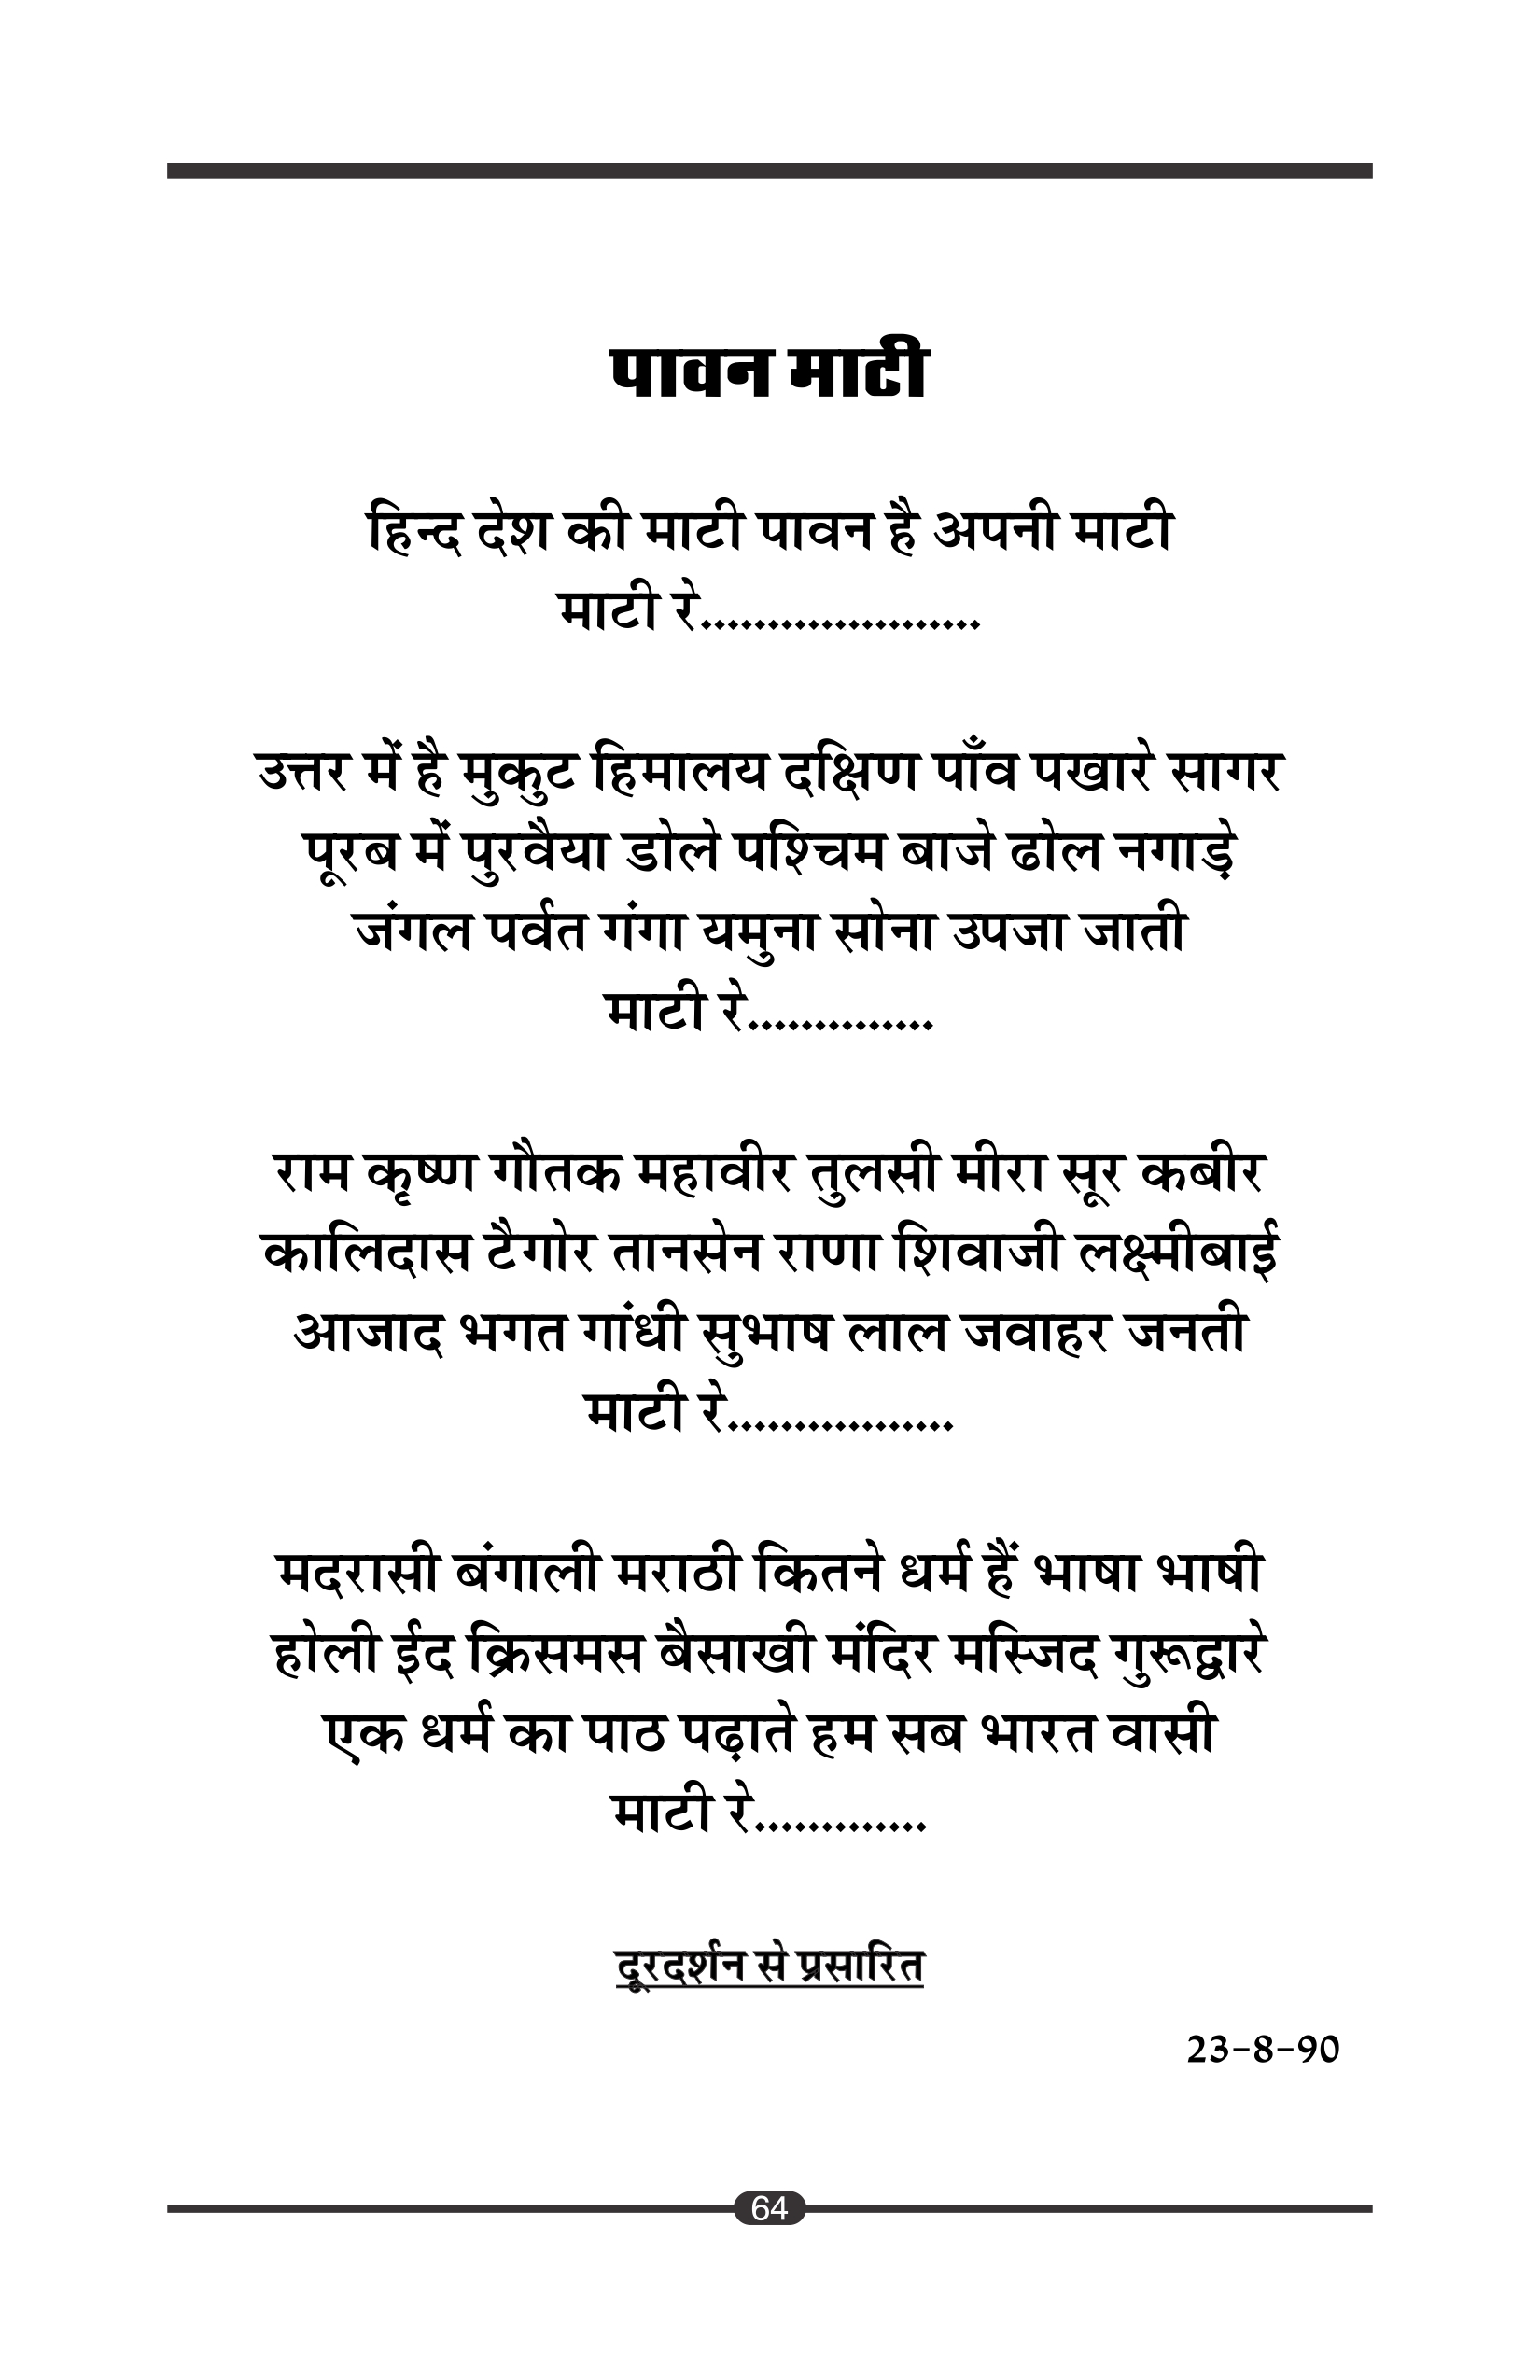 पावन माटी
हिन्द देश की माटी पावन है अपनी माटी
माटी रे.....................
उत्तर में है मुकुट हिमालय दक्षिण पाँव पखारे सागर
पूरब में पुरवैया डोले पश्चिम बाजे ढोल नगाड़े
जंगल पर्वत गंगा यमुना सोना उपजा जाती
माटी रे..............
राम कृष्ण गौतक महावीर तुलसी मीरा सूर कबीर
कालिदास टैगोर तानसेन राणा शिवाजी लक्ष्मीबाई
आजाद भगत गांधी सुभाष लाल जवाहर जनती
माटी रे.................
मदरासी बंगाली मराठी कितने धर्म हैं भाषा भाषी
होली ईद क्रिसमस बैसाखी मंदिर मस्जिद गुरूद्वारे
एक धर्म का पाठ पढ़ाते हम सब भारत वासी
माटी रे.............
दूरदर्शन से प्रसारित
23-8-90
64